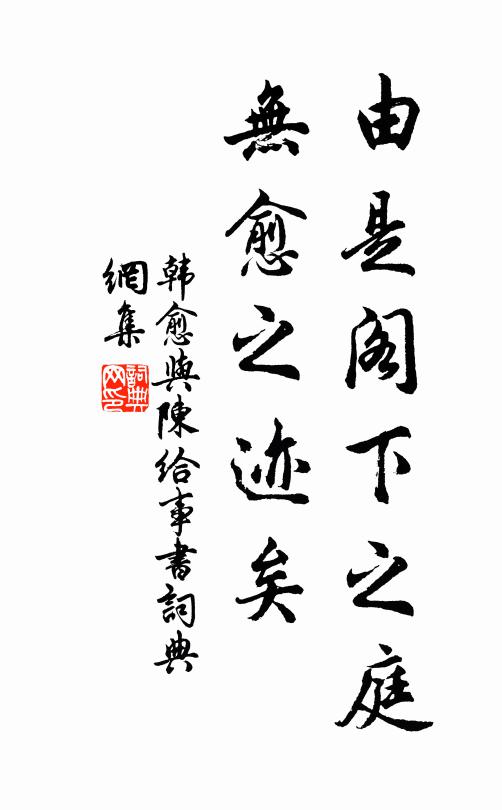 由是阁下之庭
無愈之迹矣
韩愈與陳给事書詞典
網集
詞典
网印